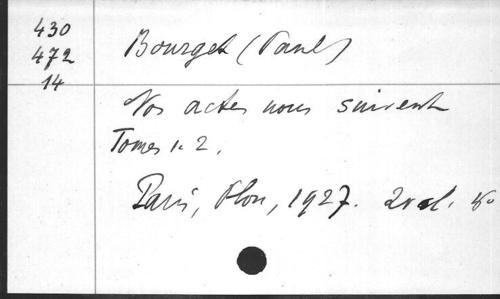 430
472
14
Bourget (Paul)
Nos actes nous suivent
Tomes 1. 2.
Paris, Plon, 1927. 2 vol. 8o